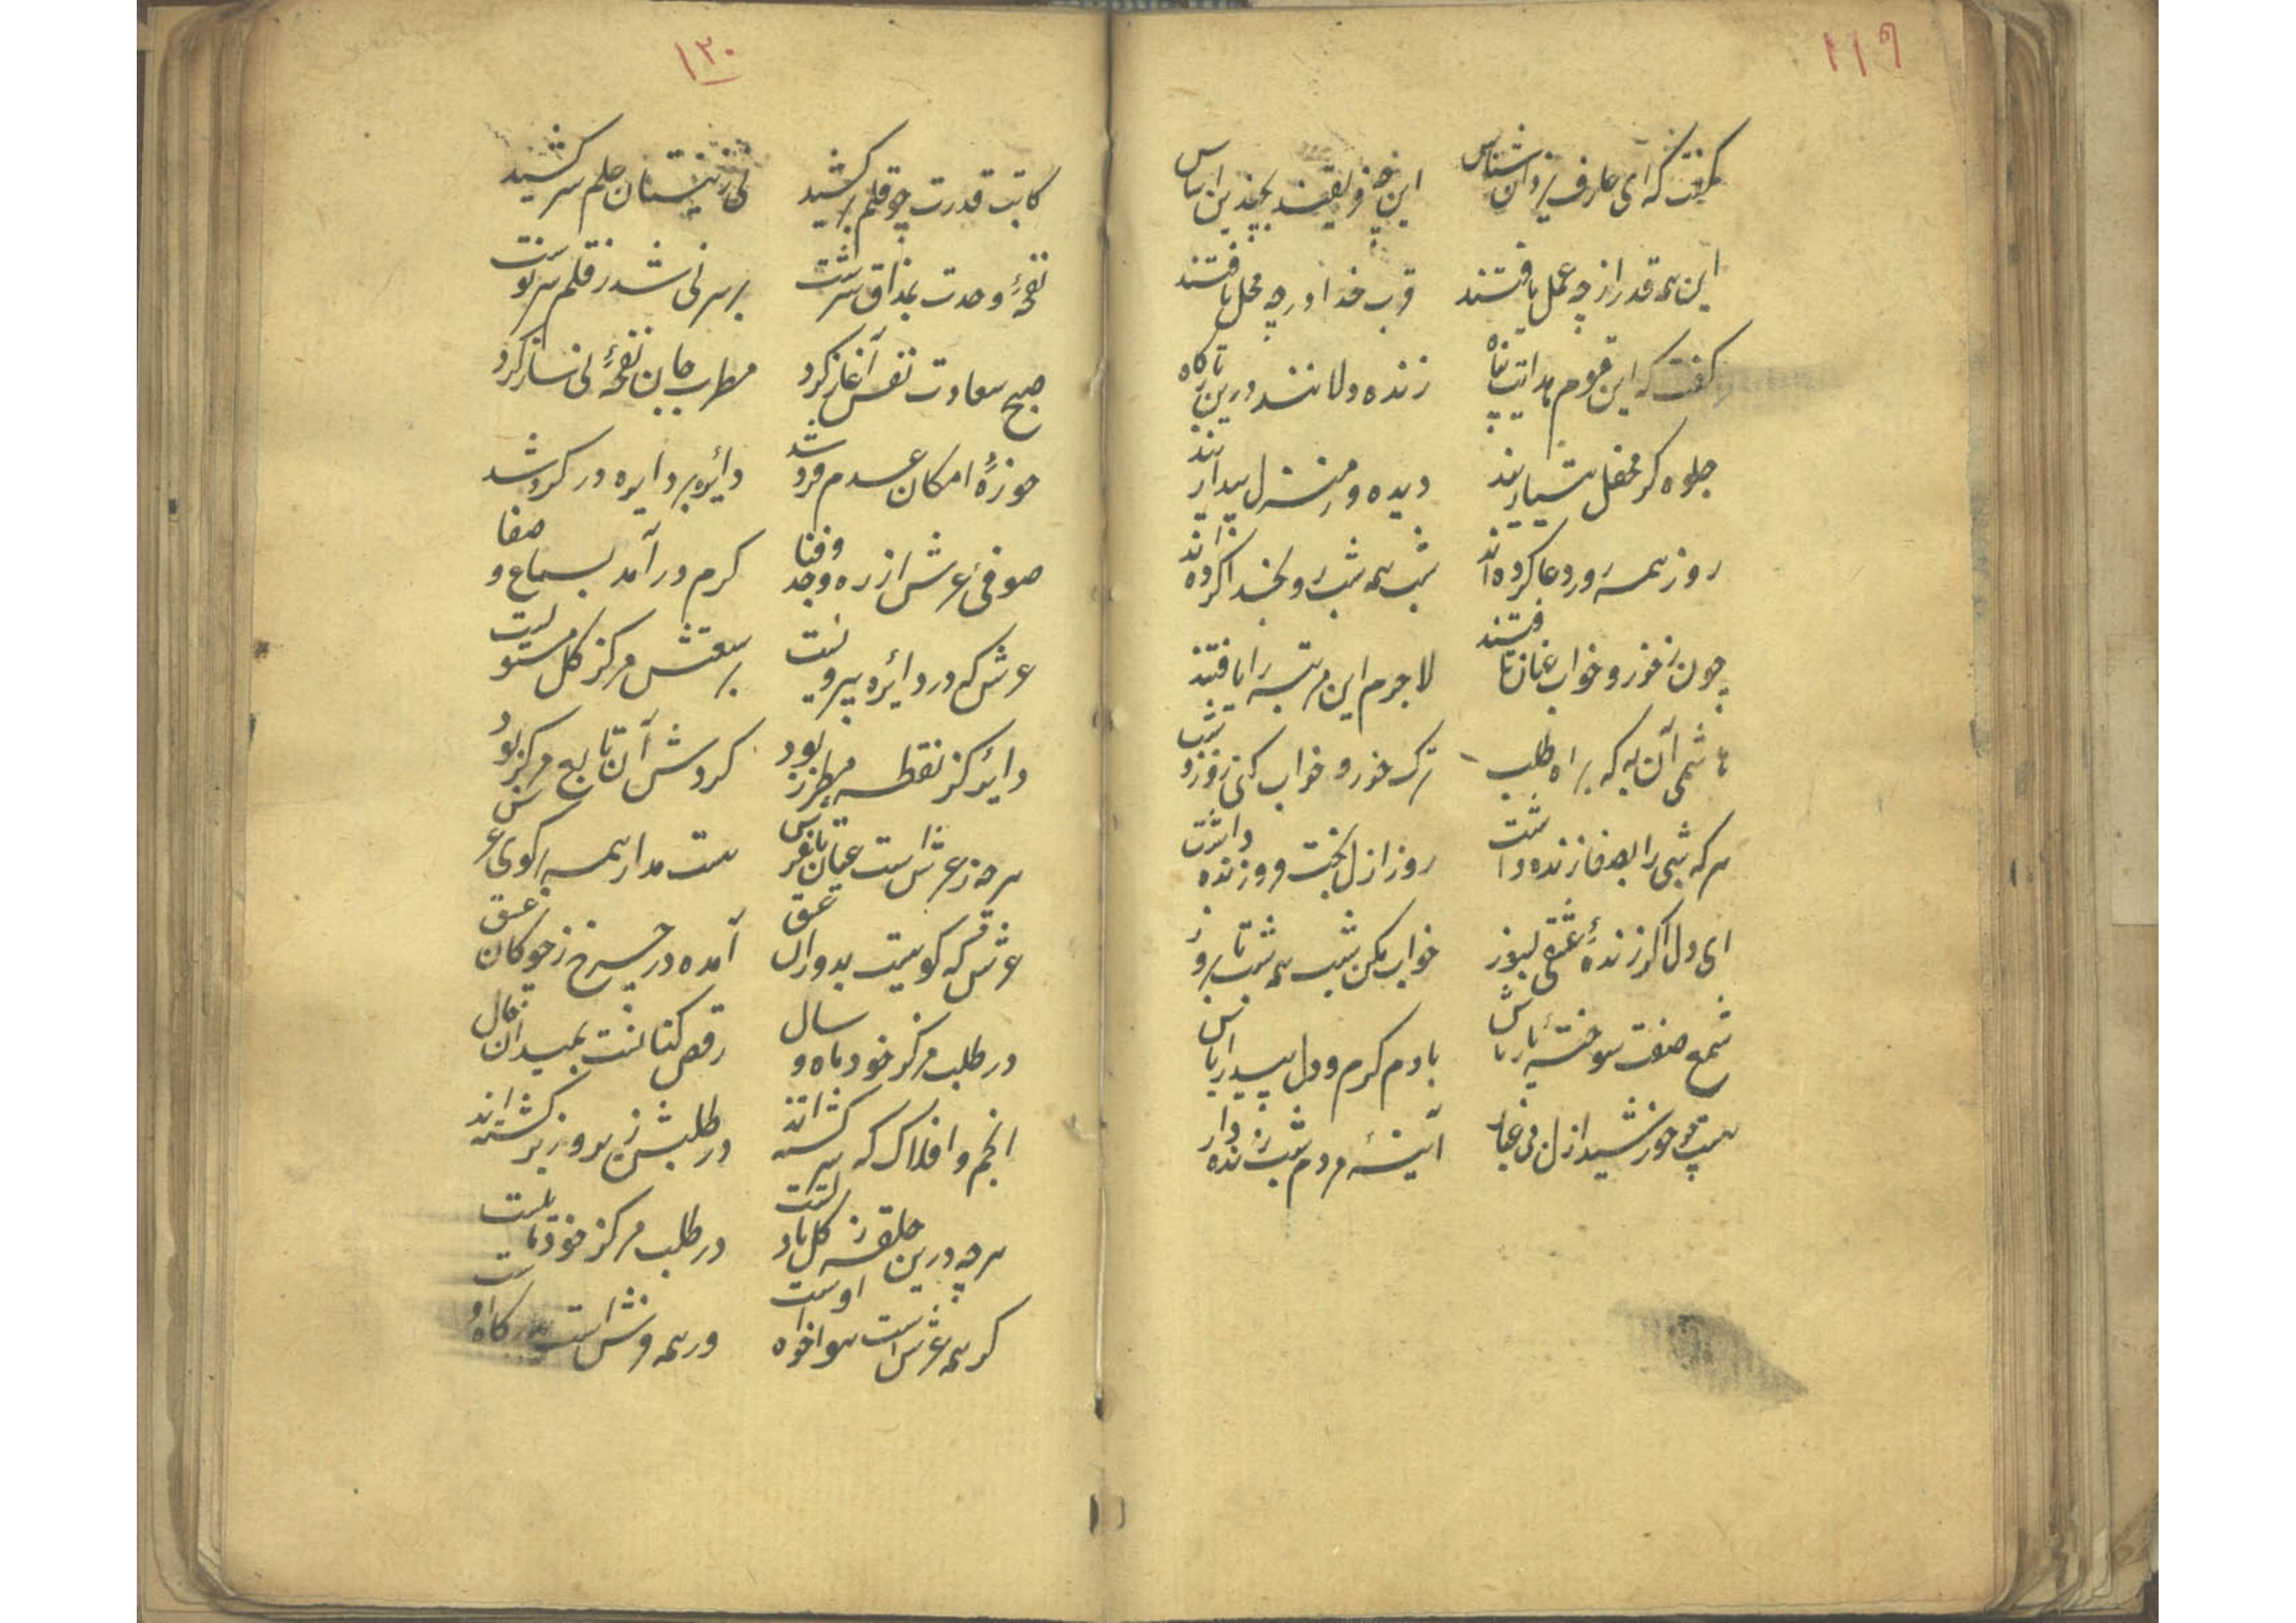 ۱۱۹
گفت که ای عارف یزدان شناس این چه فریقند بچندین اساس
این همه قدر از چه عمل یافتند قرب خدا در چه محل یافتند
گفت که این قوم هدایت پناه زنده دلانند درین بارگاه
جلوه گر محفل هشیاریند دیده ور منزل بیداریند
روز همه رو بدعا کرده اند شب همه شب رو بخدا کرده اند
چون ز خور و خواب عنان تافتند لاجرم این مرتبه را یافتند
هاشمی آن به که براه طلب ترک خور و خواب کنی روز و شب
هر که شبی را بصفا زنده داشت روز ازل بخت فروزنده داشت
ای دل اگر زندهٔ عشقی بسوز خواب مکن شب همه شب تا بروز
شمع صفت سوختهٔ یار باش با دم گرم و دل بیدار باش
هست چو خورشید ازل بی غبار آینهٔ مردم شب زنده دار
۱۲۰
کاتب قدرت چو قلم برکشید نی ز نیستان علم سر کشید
نغمهٔ وحدت بمذاق سرشت بر سر نی شد ز قلم سرنوشت
صبح سعادت نفس آغاز کرد مطرب جان نغمهٔ نی ساز کرد
حوزهٔ امکان عدم فرد شد دائره بر دایره در گرد شد
صوفی عرش از ره وجد و فنا گرم درآمد بسماع و صفا
عرش که در دائره بیرونست سعتش مرکز کل
دایره کز نقطه مطرز بود گردش آن تابع مرکز بود
هر چه ز عرش است عیان تا بفرش هست مدار همه بر کوی عرش
عرش که گوییست بدوران عشق آمده در چرخ ز چوگان عشق
در طلب مرکز خود ماه و سال رقص کنانست بمیدان حال
انجم و افلاک که سرگشته اند در طلبش زیر و زبر گشته اند
هر چه درین حلقه ز گل تا دلست در طلب مرکز خود مایلست
گر همه عرش است هواخواه اوست ور همه فرش است بدرگاه اوست